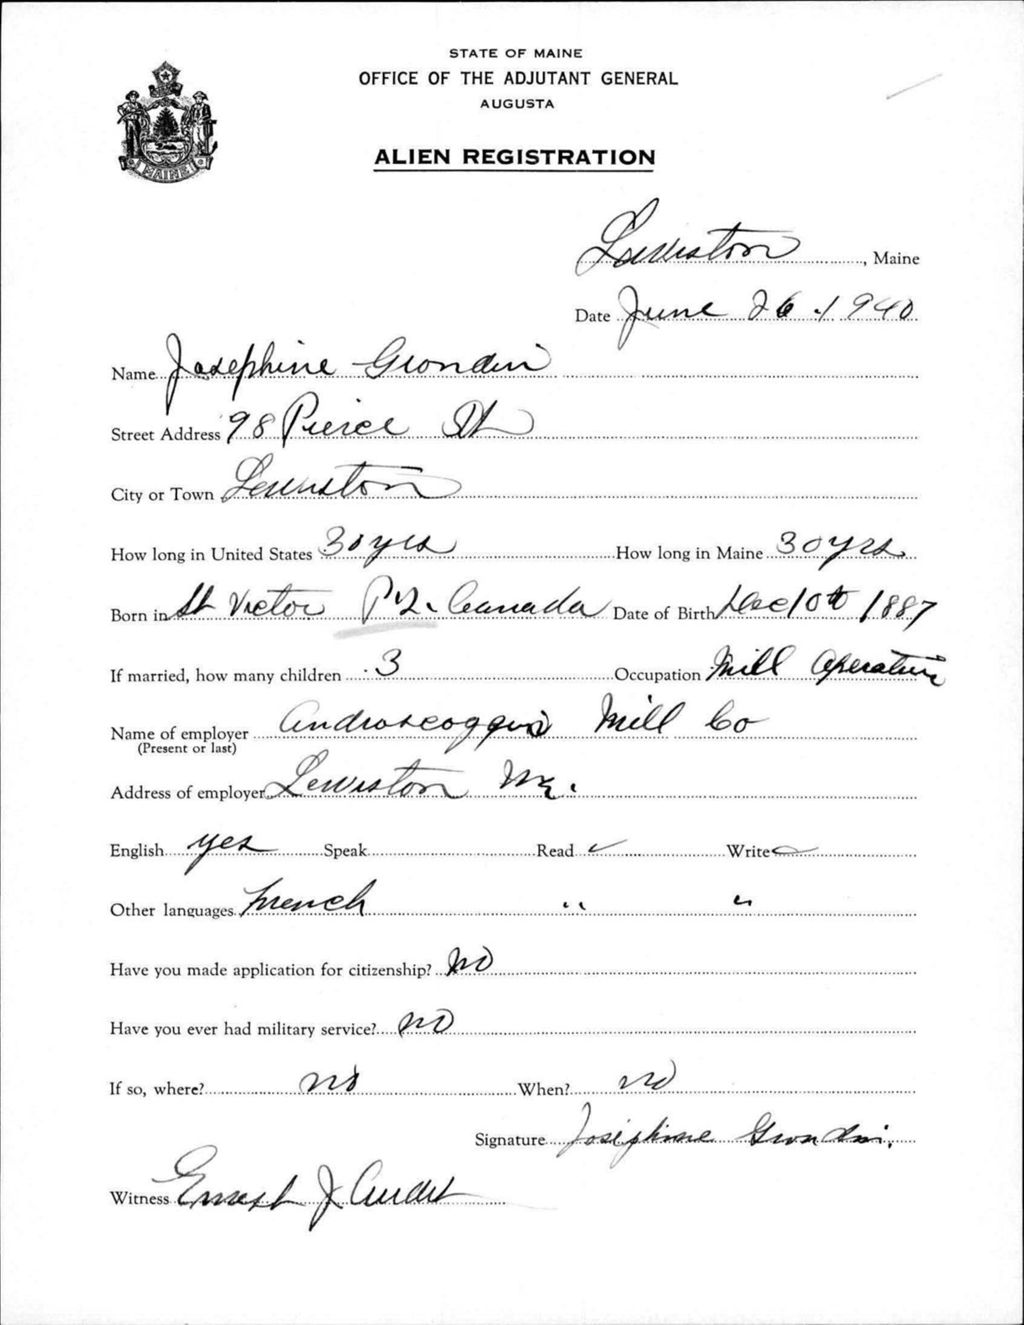 STATE OF MAINE
OFFICE OF THE ADJUTANT GENERAL
AUGUSTA
ALIEN REGISTRATION
MAINE
Lewiston, Maine
Date June 26. 1940
Name Josephine Grondin
Street Address 98 Pierce St
City or Town Lewiston
How long in United States 30 yrs How long in Maine 30 yrs.
Born in St Victor P.Q. Canada Date of Birth Dec 10th 1887
If married, how many children 3 Occupation Mill Operative
Name of employer Androscoggin Mill Co
(Present or last)
Address of employer Lewiston Me.
English yes Speak Read ✓ Write ✓
Other languages French " "
Have you made application for citizenship? No
Have you ever had military service? no
If so, where? no When? no
Signature Josephine Grondin.
Witness Ernest J Audet